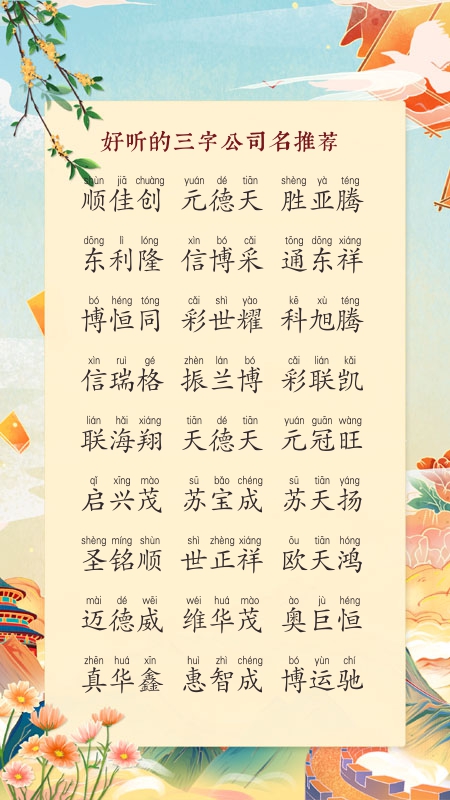 好听的三字公司名推荐
shùn jiā chuàng yuán dé tiān shèng yà téng
顺佳创 元德天 胜亚腾
dōng lì lóng xìn bó cǎi tōng dōng xiáng
东利隆 信博采 通东祥
bó héng tóng cǎi shì yào kē xù téng
博恒同 彩世耀 科旭腾
xìn ruì gé zhèn lán bó cǎi lián kǎi
信瑞格 振兰博 彩联凯
lián hǎi xiáng tiān dé tiān yuán guān wàng
联海翔 天德天 元冠旺
qǐ xīng mào sū bǎo chéng sū tiān yáng
启兴茂 苏宝成 苏天扬
shèng míng shùn shì zhèng xiáng ōu tiān hóng
圣铭顺 世正祥 欧天鸿
mài dé wēi wéi huá mào ào jù héng
迈德威 维华茂 奥巨恒
zhēn huá xīn huì zhì chéng bó yùn chí
真华鑫 惠智成 博运驰